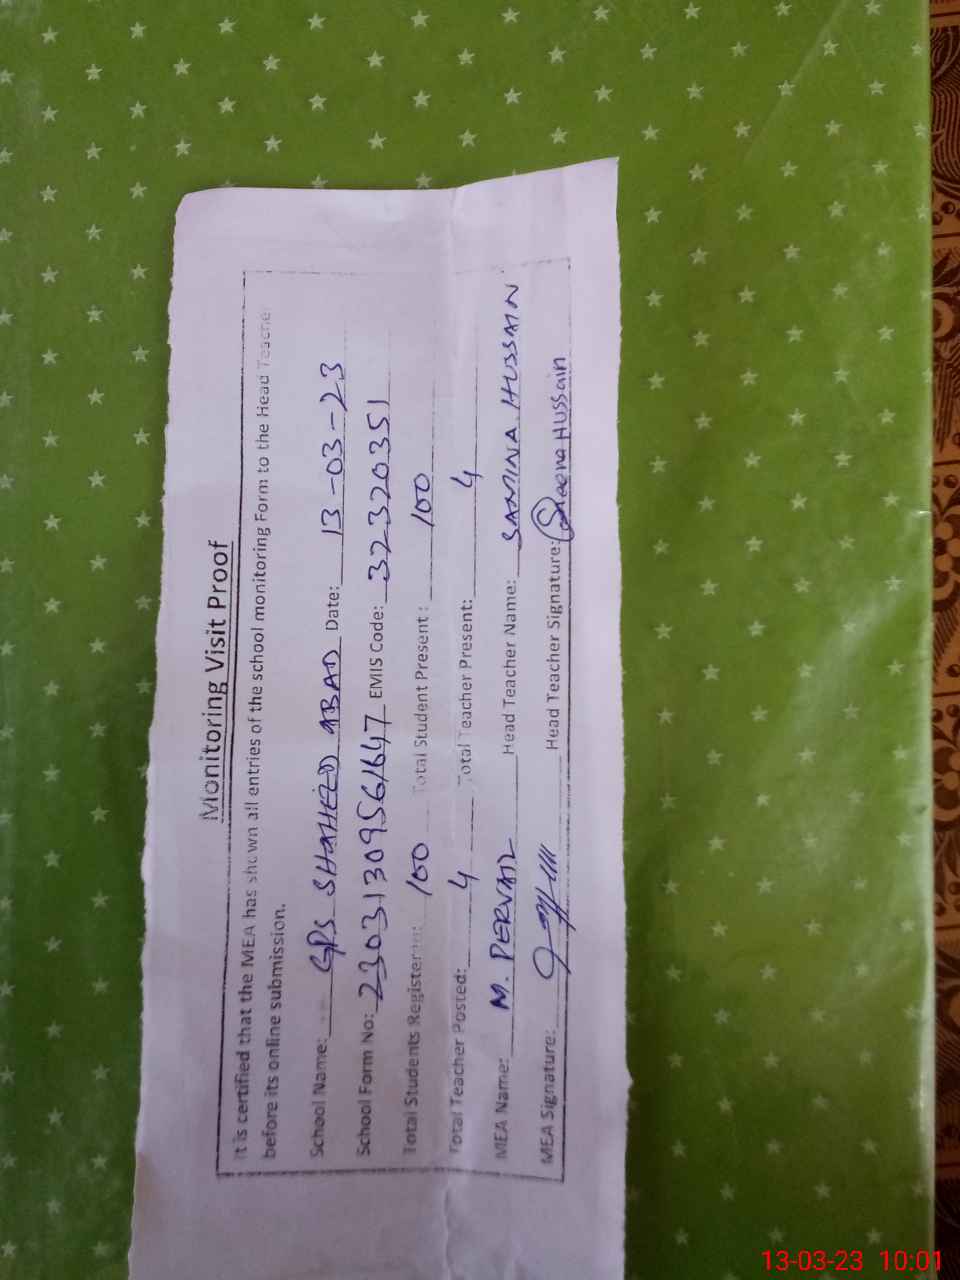 Monitoring Visit Proof
It is certified that the MEA has shown all entries of the school monitoring Form to the Head Teacher
before its online submission.
School Name: GPS SHAHEED ABAD Date: 13-03-23
School Form No: 23031309561647 EMIS Code: 32320351
Total Students Registered: 100 Total Student Present: 100
Total Teacher Posted: 4 Total Teacher Present: 4
MEA Name: M. PERVAIZ Head Teacher Name: SAMINA HUSSAIN
MEA Signature: Head Teacher Signature: HUSSain
13-03-23 10:01